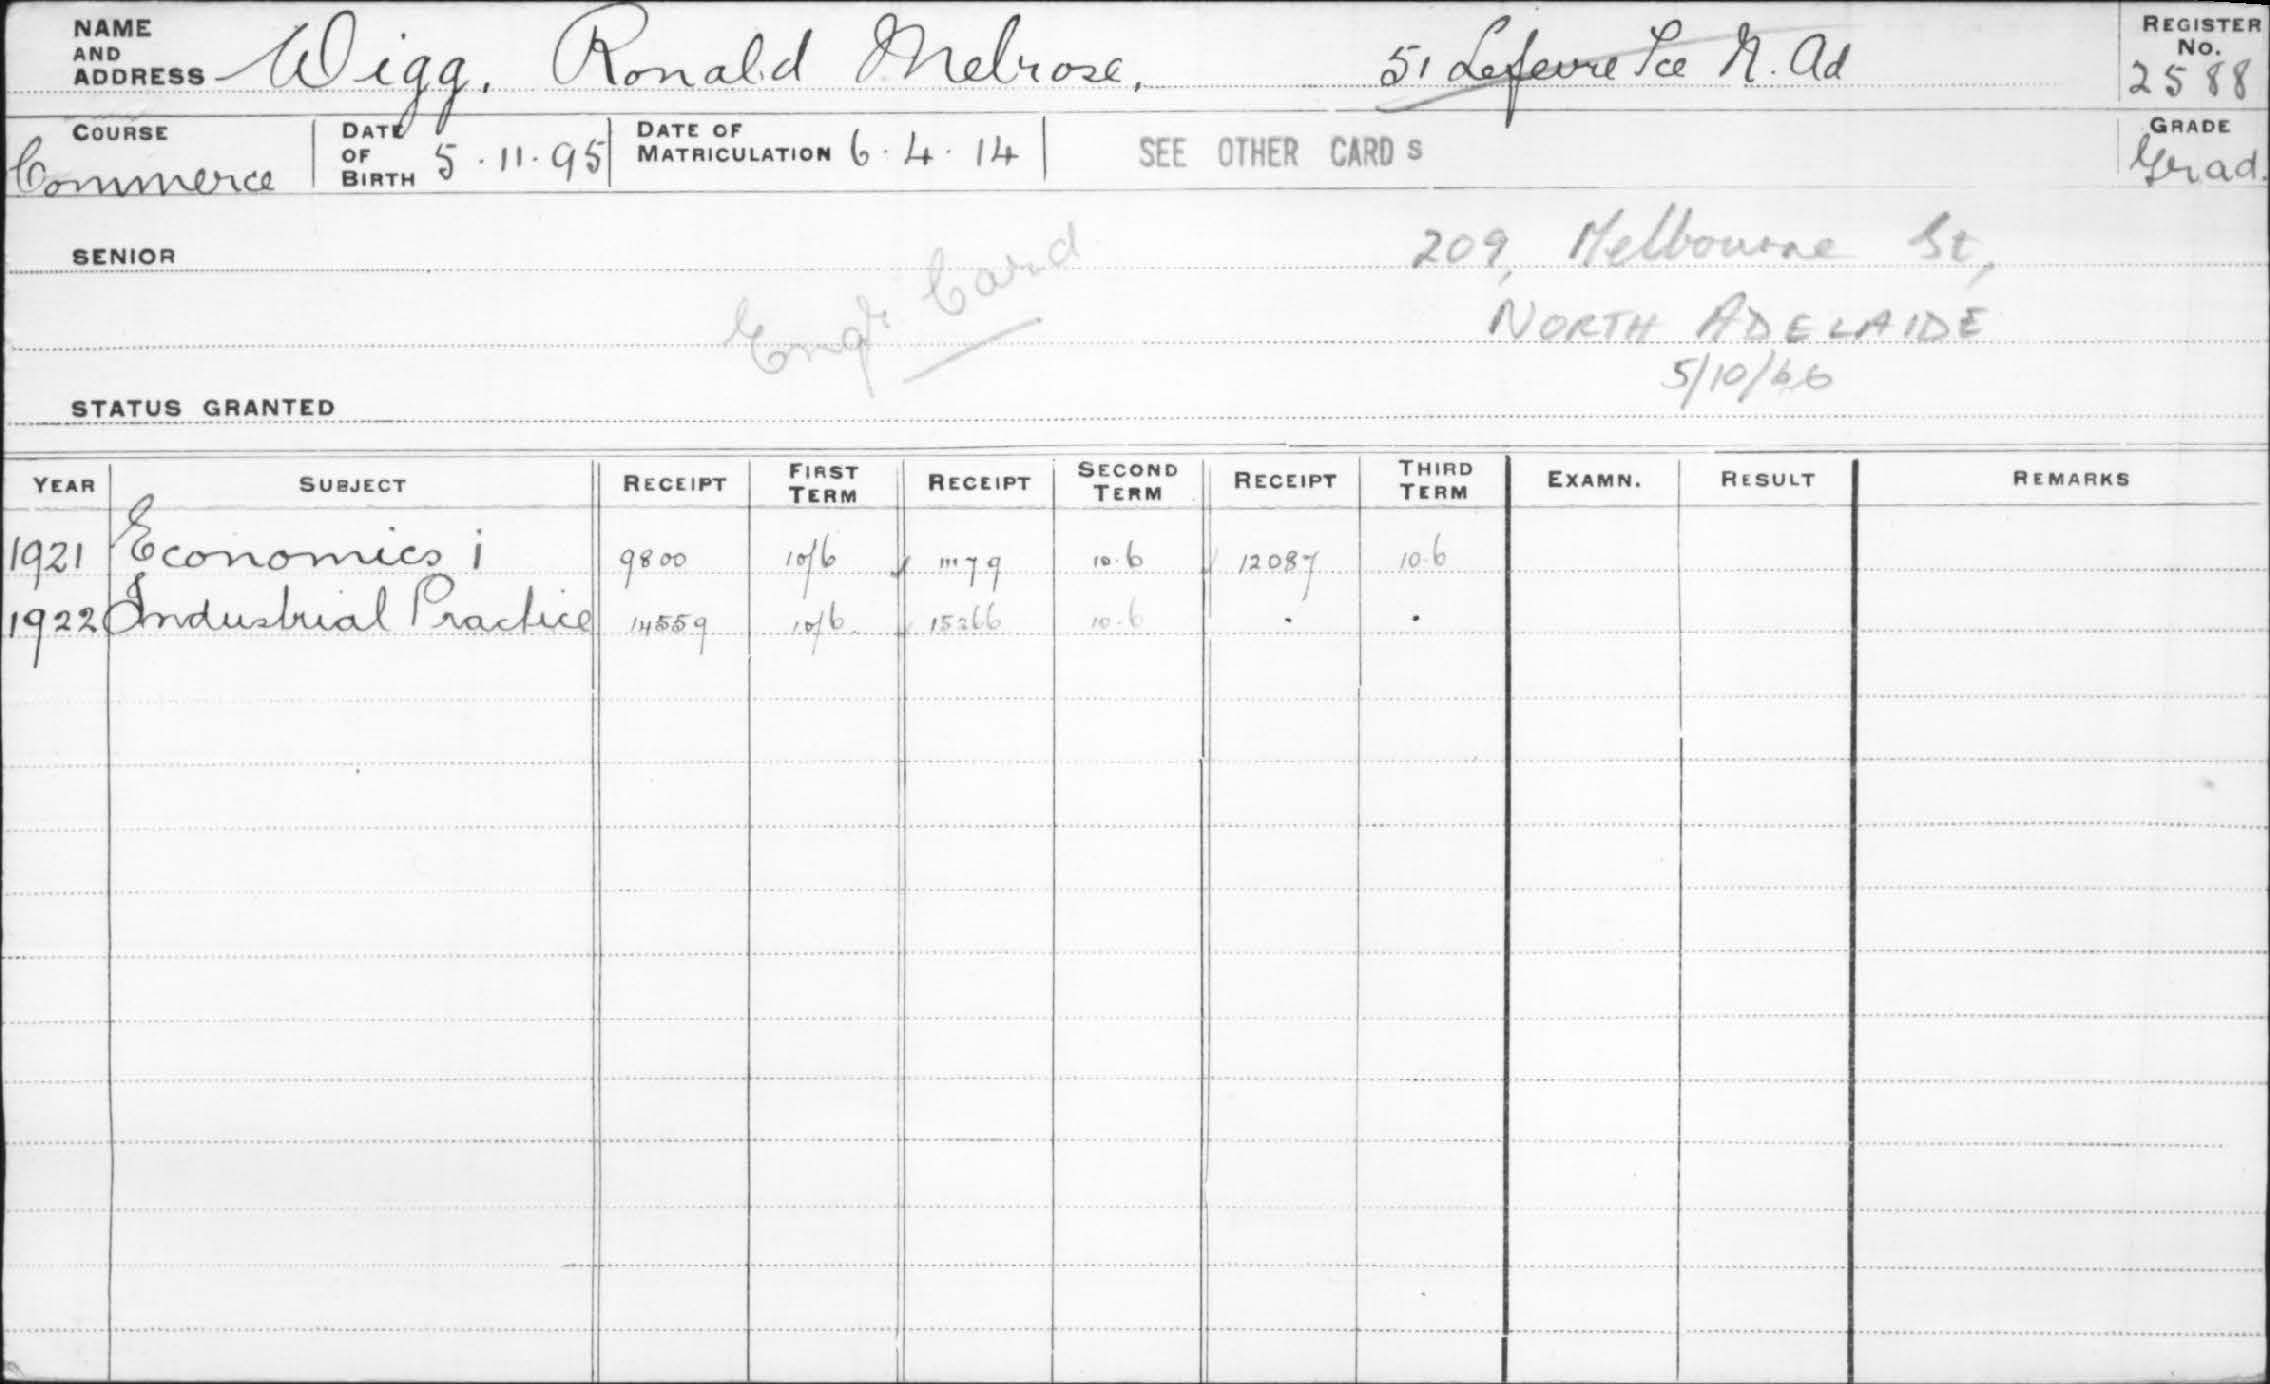 NAME AND ADDRESS Wigg, Ronald Melrose, 51 Lefevre Tce N. Ad
REGISTER No. 2588
COURSE Commerce
DATE OF BIRTH 5.11.95
DATE OF MATRICULATION 6.4.14
SEE OTHER CARDS
GRADE Grad.
SENIOR
209, Melbourne St,
Eng. Card
NORTH ADELAIDE
5/10/66
STATUS GRANTED
YEAR SUBJECT RECEIPT FIRST TERM RECEIPT SECOND TERM RECEIPT THIRD TERM EXAMN. RESULT REMARKS
1921 Economics i 9800 10/6 11179 10.6 12087 10.6
1922 Industrial Practice 14559 10/6 15266 10.6